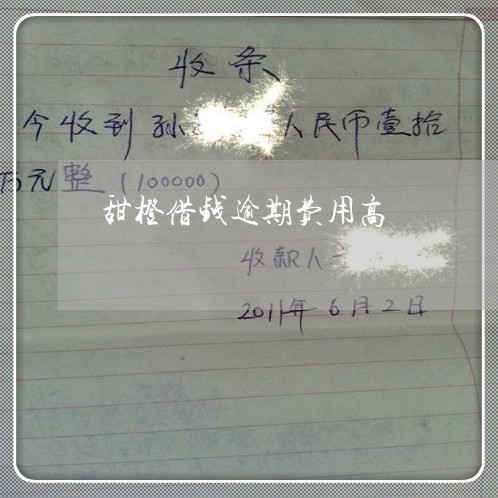 收条
今收到孙 人民币壹拾
万元整(100000)
甜橙借钱逾期费用高
收款人
2011年6月2日